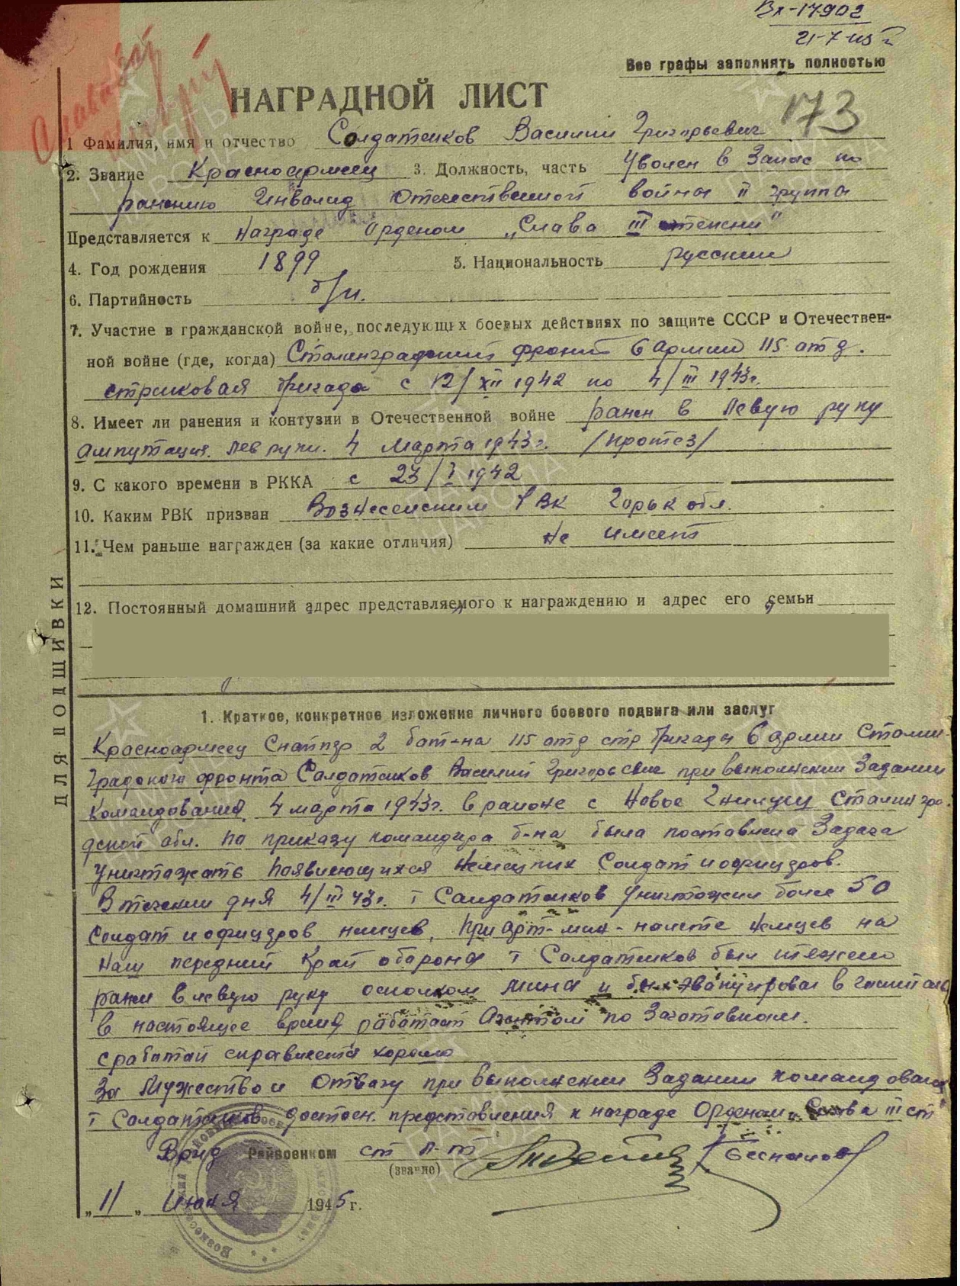 Вх-17902
21-7-45 г
Все графы заполнять полностью
НАГРАДНОЙ ЛИСТ
173
1 Фамилия, имя и отчество Солдатенков Василий Григорьевич
2. Звание Красноармеец 3. Должность, часть Уволен в Запас по
ранению Инвалид Отечественной войны II группы
Представляется к Награде Орденом „Слава III степени"
4. Год рождения 1899 5. Национальность русский
6. Партийность б/п.
7. Участие в гражданской войне, последующих боевых действиях по защите СССР и Отечествен-
ной войне (где, когда) Сталинградский фронт 6 Армии 115 отд.
стрелковая бригада с 12/XII 1942 по 4/III 1943г.
8. Имеет ли ранения и контузии в Отечественной войне ранен в левую руку
Ампутация лев руки. 4 марта 1943г. /протез/
9. С какого времени в РККА с 23/I 1942
10. Каким РВК призван Вознесенским РВК Горьк обл.
11. Чем раньше награжден (за какие отличия) Не имеет
12. Постоянный домашний адрес представляемого к награждению и адрес его семьи
ДЛЯ ПОДШИВКИ
1. Краткое, конкретное изложение личного боевого подвига или заслуг
Красноармеец Снайпер 2 бат-на 115 отд стр бригады 6 армии Сталин-
градского фронта Солдатенков Василий Григорьевич при выполнении Задании
Командования 4 марта 1943г. в районе с Новое Сталинград-
ской обл. по приказу командира б-на была поставлена Задача
уничтожать появляющихся немецких Солдат и офицеров.
В течении дня 4/III 43г. т Солдатенков уничтожил более 50
солдат и офицеров немцев. При Арт-мин-налете немцев на
наш передний Край обороны т Солдатенков был тяжело
ранен в левую руку осколком мины и был эвакуирован в госпиталь
в настоящее время работает Агентом по Заготовкам.
с работай справляется хорошо
За Мужество и Отвагу при выполнении Задании командования
т Солдатенков достоен представления к награде Орденом Слава III ст
Врид Райвоенком ст л-т
(звание)
„11" Июля 1945г.